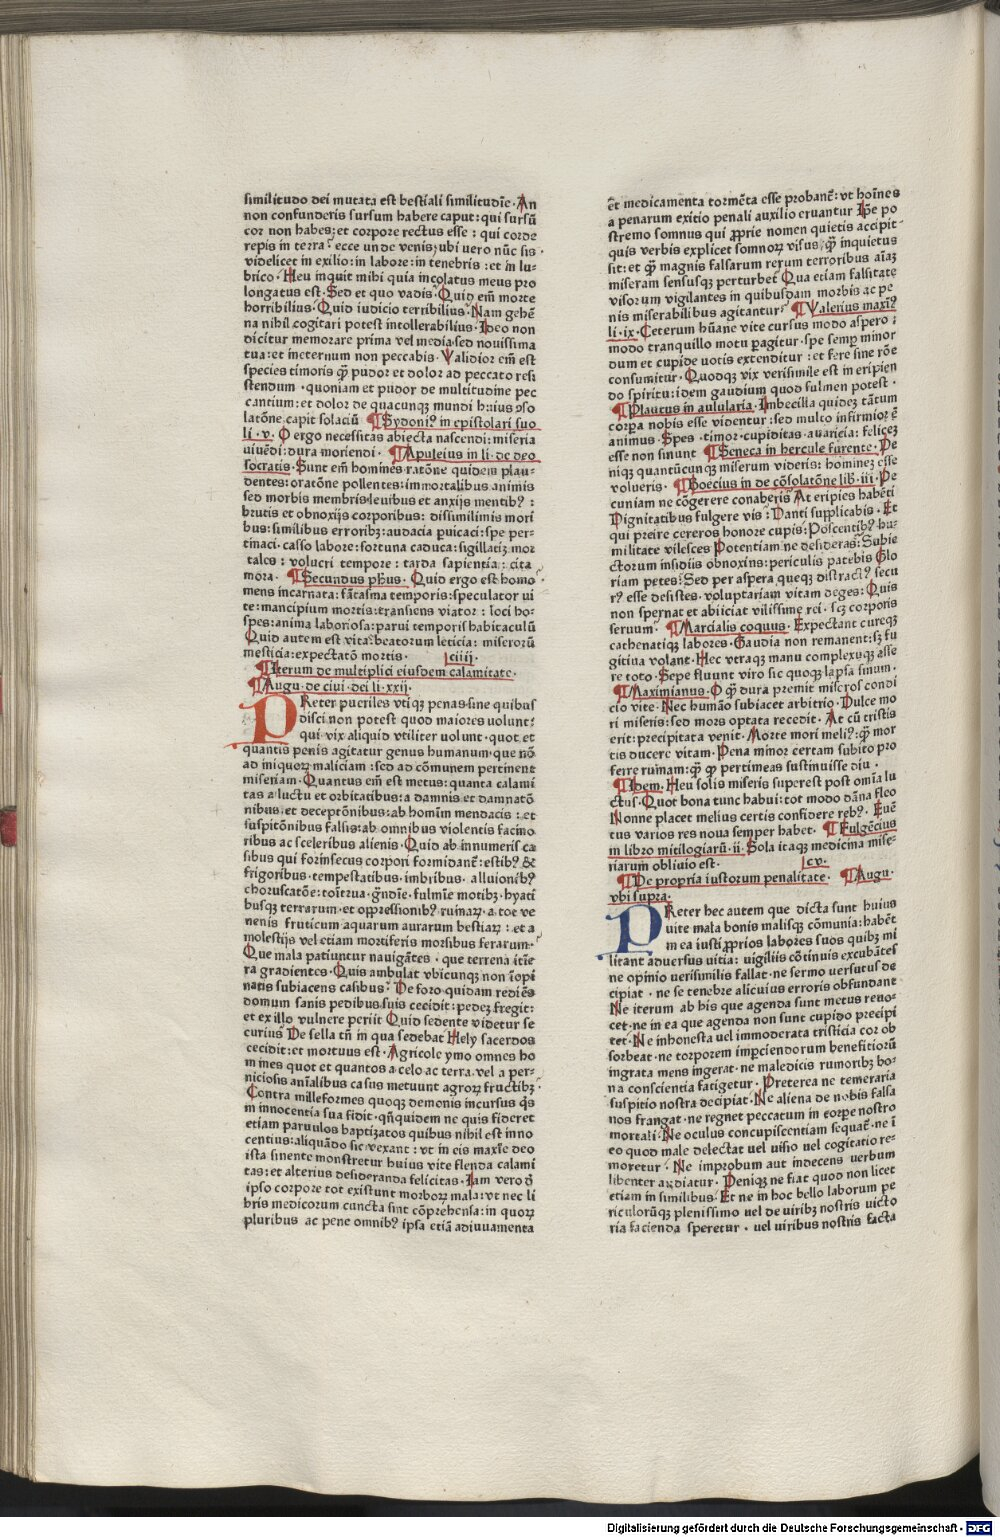 similitudo dei mutata est bestiali similitudīe · An
non confunderis sursum habere caput : qui sursū
cor non habes : et corpore rectus esse : qui corde
repis in terra · ecce unde venis : ubi vero nūc sis ·
videlicet in exilio : in labore : in tenebris : et in lu-
brico · Heu inquit mihi quia incolatus meus pro
longatus est · Sed et quo vadis · Quid em̄ morte
horribilius · Quid iudicio terribilius · Nam gehē
na nihil cogitari potest intollerabilius · Ideo non
dicitur memorare prima vel media sed novissima
tua : et ineternum non peccabis · Validior em̄ est
species timoris ꝙ̄ pudor et dolor ad peccato resi
stendum · quoniam et pudor de multitudine pec
cantium : et dolor de quacunqꝫ mundi huius ↄso
latōne capit solaciū ¶ Sydoniꝰ in epistolari suo
li · v · O ergo necessitas abiecta nascendi : miseria
viuēdi : dura moriendi · ¶ Apuleius in li · de deo
socratis · Sunt em̄ homines ratōne quidem plau-
dentes : oratōne pollentes : immortalibus animis
sed morbis membris : leuibus et anxijs mentibꝰ :
brutis et obnoxijs corporibus : dissimilimis mori
bus : similibus erroribꝫ : audacia puicaci : spe per-
tinaci · casso labore : fortuna caduca : sigillatiꝫ mor
tales : volucri tempore : tarda sapientia : cita
mora · ¶ Secundus ph̄us · Quid ergo est homo ·
mens incarnata : fātasma temporis : speculator ui
te : mancipium mortis : transiens viator : loci ho-
spes : anima laboriosa : parui temporis habitaculū
Quid autem est vita : beatorum leticia : miserorū
mesticia : expectatō mortis · ciiij ·
¶ Iterum de multiplici eiusdem calamitate ·
¶ Augu · de ciui · dei li · xxij ·
PReter pueriles vtiqꝫ penas : sine quibus
disci non potest quod maiores uolunt :
qui vix aliquid vtiliter uolunt · quot et
quantis penis agitatur genus humanum · que nō
ad iniquoꝝ maliciam : sed ad cōmunem pertinent
miseriam · Quantus em̄ est metus : quanta calami
tas a luctu et orbitatibus : a damnis et damnatō
nibus · et deceptōnibus : ab hominum mendacis : et
suspitōnibus falsis : ab omnibus violentis facino
ribus ac sceleribus alienis · Quid ab innumeris ca
sibus qui forinsecus corpori formidanē : estibꝰ &
frigoribus · tempestatibus · imbribus · alluionibꝰ
choruscatōne : toītrua · grādine · fulmīe motibꝫ · hyati
busqꝫ terrarum · et oppressionibꝰ ruinaꝝ · a tot ve
nenis fruticum aquarum aurarum bestiaꝝ : et a
molestijs vel etiam mortiferis morsibus ferarum ·
Que mala patiuntur nauigātes · que terrena itīe
ra gradientes · Quis ambulat vbicunqꝫ non īopi
natis subiacens casibus · De foro quidam rediēs
domum sanis pedibus suis cecidit : pedeꝫ fregit :
et ex illo vulnere periit Quid sedente videtur se
curius De sella tn̄ in qua sedebat Hely sacerdos
cecidit : et mortuus est · Agricole ymo omnes ho
mines quot et quantos a celo ac terra · vel a per-
niciosis aniālibus casus metuunt agroꝝ fructibꝫ ·
Contra milleformes quoqꝫ demonis incursus qⁱs
in innocentia sua fidit · qn̄quidem ne quis fideret
etiam paruulos baptizatos quibus nihil est inno
centius : aliquādo sic vexant : vt in eis maxīe deo
ista sinente monstretur huius vite flenda calami
tas : et alterius desideranda felicitas · Iam vero ð
ipso corpore tot existunt morboꝝ mala : vt nec li
bris medicorum cuncta sint cōprehensa : in quoꝝ
pluribus ac pene omnibꝰ ipsa etiā adiuuamenta
et medicamenta tormēta esse probanē : vt hoīnes
a penarum exitio penali auxilio eruantur Ipe po
stremo somnus qui ꝓprie nomen quietis accipit
quis verbis explicet somnoꝝ visus : ꝙ̄ inquietus
sit : et ꝙ̄ magnis falsarum rerum terroribus aīaꝫ
miseram sensusqꝫ perturbet Qua etiam falsitate
visorum vigilantes in quibusdam morbis ac pe
nis miserabilibus agitantur · ¶ Valerius maxīꝰ
li · ix · Ceterum hūane vite cursus modo aspero :
modo tranquillo motu ꝑagitur · spe semꝑ minor
dum et cupide uotis extenditur : et fere sine rōe
consumitur · Quodqꝫ vix verisimile est in eripien
do spiritu : idem gaudium quod fulmen potest ·
¶ Plautus in aulularia · Imbecilla quideꝫ tātum
corꝑa nobis esse videntur : sed multo infirmior ē
animus · Spes · timor · cupiditas · auaricia : feliceꝫ
esse non sinunt ¶ Seneca in hercule furente · De
niqꝫ quantūcunqꝫ miserum videris : homineꝫ esse
volueris · ¶ Boecius in de cōsolatōne lib · iii · Pe
cuniam ne cōgerere conaberis At eripies habēti
Dignitatibus fulgere vis : Danti supplicabis · Et
qui preire ceteros honore cupis : Poscentibꝰ hu-
militate vilesces Potentiam ne desideras : Subie
ctorum insidiis obnoxius : periculis patebis Glo
riam petes : Sed per aspera queqꝫ distractꝰ secu
rꝰ esse desistes · voluptariam vitam deges : Quis
non spernat et abiiciat vilissime rei · scꝫ corporis
seruum · ¶ Marcialis coquus · Expectant cureqꝫ
cathenatiqꝫ labores · Gaudia non remanent : sꝫ fu
gitiua volant · Hec vtraqꝫ manu complexuqꝫ asse
re toto · Sepe fluunt viro sic quoqꝫ lapsa sinum ·
¶ Maximianus · O ꝙ̄ dura premit miseros condi
cio vite · Nec humāo subiacet arbitrio · Dulce mo
ri miseris : sed mors optata recedit · At cū tristis
erit : precipitata venit · Morte mori meliꝰ : ꝙ̄ mor
tis ducere vitam · Pena minor certam subito pro
ferre ruinam : ꝙ̄ ꝙ pertimeas sustinuisse diu ·
¶ Idem · Heu solis miseris superest post omīa lu
ctus · Quot bona tunc habui : tot modo dāna fleo
Nonne placet melius certis confidere rebꝰ · Euē
tus varios res noua semper habet · ¶ Fulgēcius
in libro mitilogiarū · ii · Sola itaqꝫ medicina mise-
riarum obliuio est · cv ·
¶ De propria iustorum penalitate · ¶ Augu ·
vbi supra ·
PReter hec autem que dicta sunt huius
uite mala bonis malisqꝫ cōmunia : habēt
in ea iusti ꝓprios labores suos quibꝫ mi
litant aduersus uitia : vigiliis cōtinuis excubātes
ne opinio uerisimilis fallat · ne sermo versutus de
cipiat · ne se tenebre alicuius erroris obfundant
Ne iterum ab his que agenda sunt metus reuo-
cet · ne in ea que agenda non sunt cupido precipi
tet · Ne inhonesta uel immoderata tristicia cor ob
sorbeat · ne torporem impciendorum benefitiorū
ingrata mens ingerat · ne maledicis rumoribꝫ bo-
na conscientia fatigetur · Preterea ne temeraria
suspitio nostra decipiat · Ne aliena de nobis falsa
nos frangat · ne regnet peccatum in corꝑe nostro
mortali · Ne oculus concupiscentiam sequat : ne ī
eo quod male delectat uel uisio uel cogitatio re-
moretur · Ne improbum aut indecens uerbum
libenter audiatur · Deniqꝫ ne fiat quod non licet
etiam in similibus · Et ne in hoc bello laborum pe
riculorūqꝫ plenissimo uel de uiribꝫ nostris uicto
ria facienda speretur · uel uiribus nostris facta
Digitalisierung gefördert durch die Deutsche Forschungsgemeinschaft - DFG